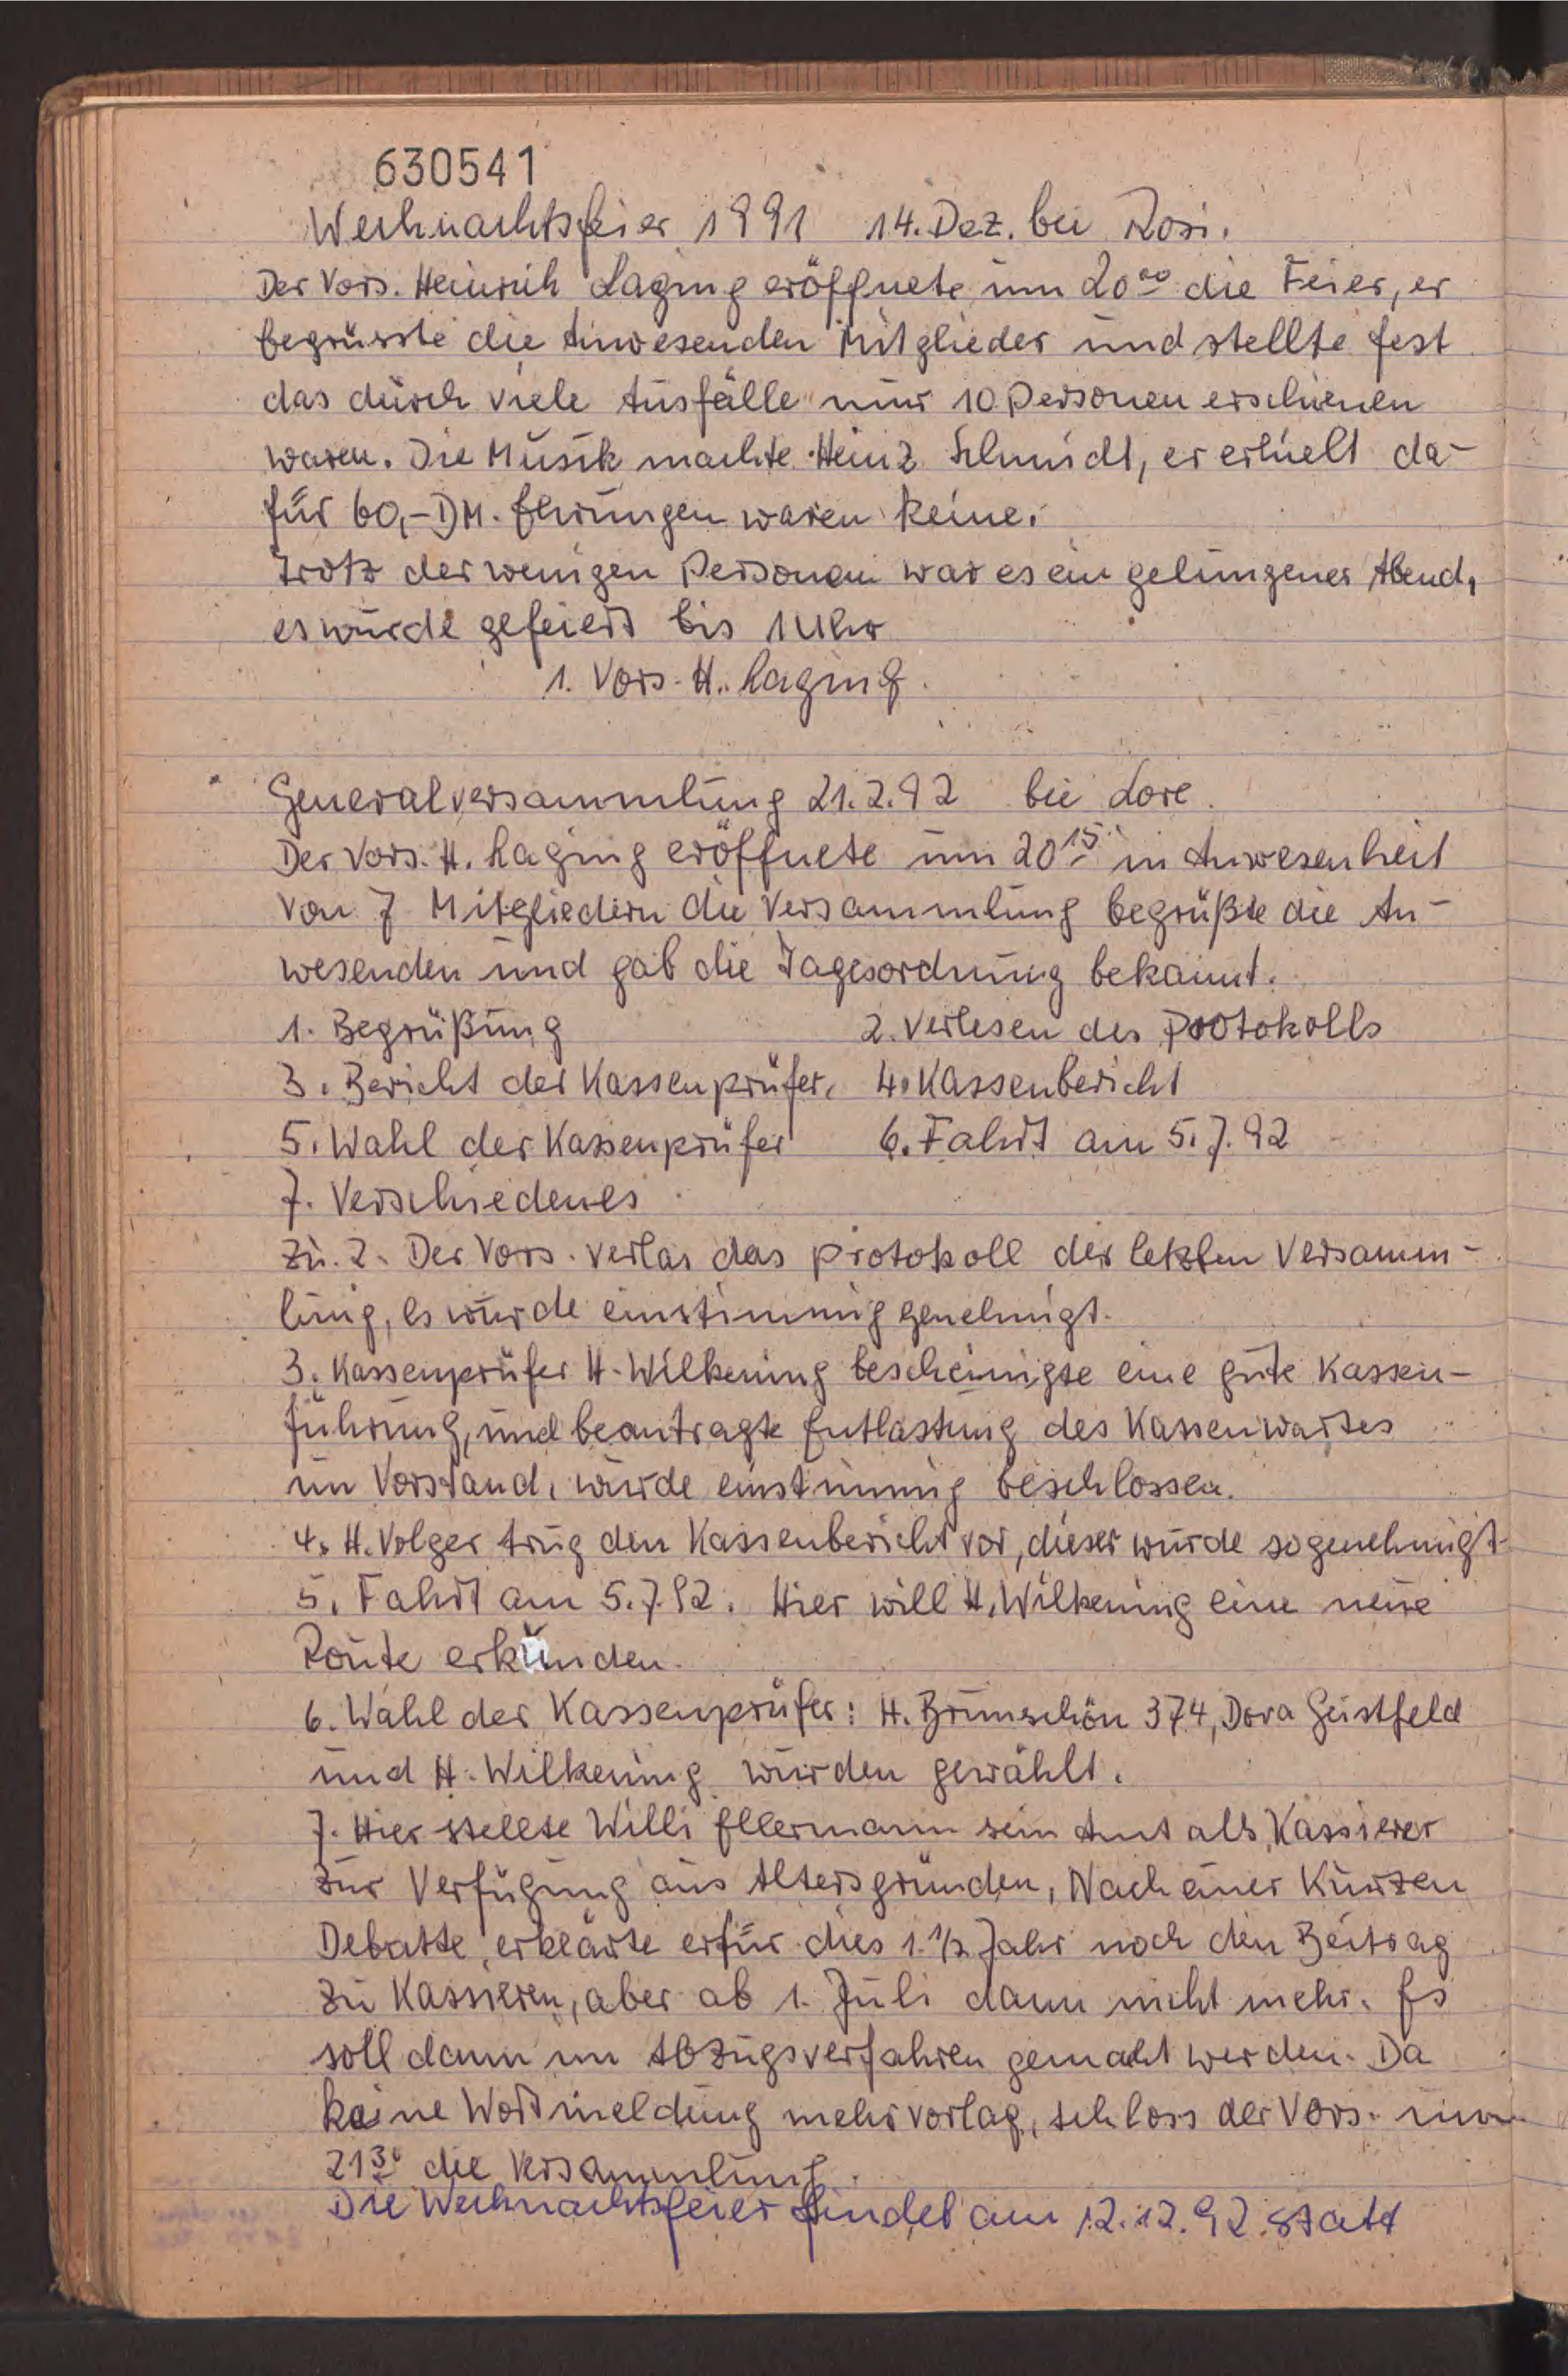 630541
Weihnachtsfeier 1991 14. Dez. bei Rosi.
Der Vors. Heinrich Laging eröffnete um 20⁰⁰ die Feier, er
begrüsste die Anwesenden Mitglieder und stellte fest
das durch viele Ausfälle nur 10 Personen erschienen
waren. Die Musik machte Heinz Schmidt, er erhielt da-
für 60,- DM. Ehrungen waren keine.
Trotz der wenigen Personen war es ein gelungener Abend,
es wurde gefeiert bis 1 Uhr
1. Vors. H. Laging.
Generalversammlung 21.2.92 bei Lore.
Der Vors. H. Laging eröffnete um 20¹⁵ in Anwesenheit
von 7 Mitgliedern die Versammlung begrüßte die An-
wesenden und gab die Tagesordnung bekannt.
1. Begrüßung 2. Verlesen des Protokolls
3. Bericht der Kassenprüfer, 4. Kassenbericht
5. Wahl der Kassenprüfer 6. Fahrt am 5.7.92
7. Verschiedenes
Zu. 2. Der Vors. verlas das Protokoll der letzten Versamm-
lung, es wurde einstimmig genehmigt.
3. Kassenprüfer H. Wilkening bescheinigte eine gute Kassen-
führung, und beantragte Entlastung des Kassenwartes
im Vorstand, wurde einstimmig beschlossen.
4. H. Volger trug den Kassenbericht vor, dieser wurde so genehmigt.
5. Fahrt am 5.7.92. Hier will H. Wilkening eine neue
Route erkunden.
6. Wahl der Kassenprüfer: H. Brunschön 374, Dora Geistfeld
und H. Wilkening wurden gewählt.
7. Hier stellte Willi Ellermann sein Amt als Kassierer
zur Verfügung aus Altersgründen, Nach einer Kurzen
Debatte, erklärte er für dies 1. 1/2 Jahr noch den Beitrag
zu Kassieren, aber ab 1. Juli dann nicht mehr. Es
soll dann im Abzugsverfahren gemacht werden. Da
keine Wortmeldung mehr vorlag, schloss der Vors. um
21³⁰ die Versammlung.
Die Weihnachtsfeier findet am 12.12.92 statt